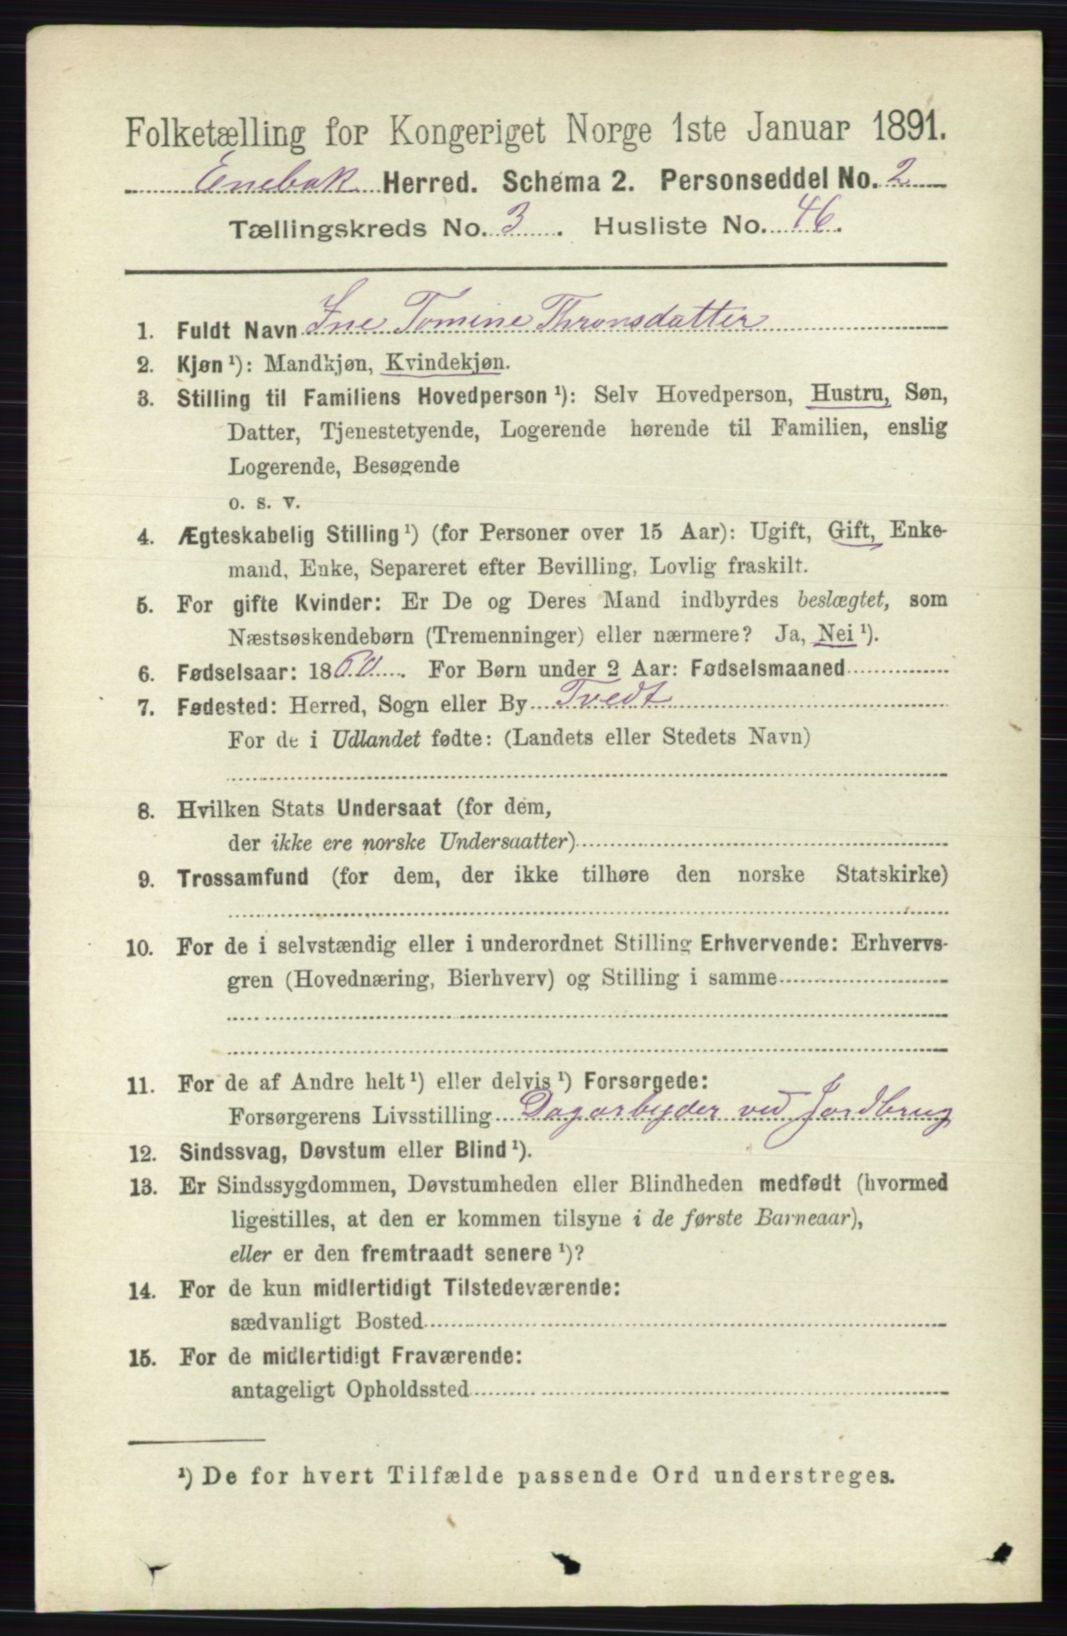 Folketælling for Kongeriget Norge 1ste Januar 1891.
Enebak Herred. Schema 2. Personseddel No. 2
Tællingskreds No. 3. Husliste No. 46.
1. Fuldt Navn Ine Tomine Thronsdatter
2. Kjøn ¹): Mandkjøn, Kvindekjøn.
3. Stilling til Familiens Hovedperson ¹): Selv Hovedperson, Hustru, Søn,
Datter, Tjenestetyende, Logerende hørende til Familien, enslig
Logerende, Besøgende
o. s. v.
4. Ægteskabelig Stilling ¹) (for Personer over 15 Aar): Ugift, Gift, Enke-
mand, Enke, Separeret efter Bevilling, Lovlig fraskilt.
5. For gifte Kvinder: Er De og Deres Mand indbyrdes beslægtet, som
Næstsøskendebørn (Tremenninger) eller nærmere? Ja, Nei ¹).
6. Fødselsaar: 1860. For Børn under 2 Aar: Fødselsmaaned
7. Fødested: Herred, Sogn eller By Tvedt
For de i Udlandet fødte: (Landets eller Stedets Navn)
8. Hvilken Stats Undersaat (for dem,
der ikke ere norske Undersaatter)
9. Trossamfund (for dem, der ikke tilhøre den norske Statskirke)
10. For de i selvstændig eller i underordnet Stilling Erhvervende: Erhvervs-
gren (Hovednæring, Bierhverv) og Stilling i samme
11. For de af Andre helt ¹) eller delvis ¹) Forsørgede:
Forsørgerens Livsstilling Dagarbejder ved Jordbrug
12. Sindssvag, Døvstum eller Blind ¹).
13. Er Sindssygdommen, Døvstumheden eller Blindheden medfødt (hvormed
ligestilles, at den er kommen tilsyne i de første Barneaar),
eller er den fremtraadt senere ¹)?
14. For de kun midlertidigt Tilstedeværende:
sædvanligt Bosted
15. For de midlertidigt Fraværende:
antageligt Opholdssted
¹) De for hvert Tilfælde passende Ord understreges.